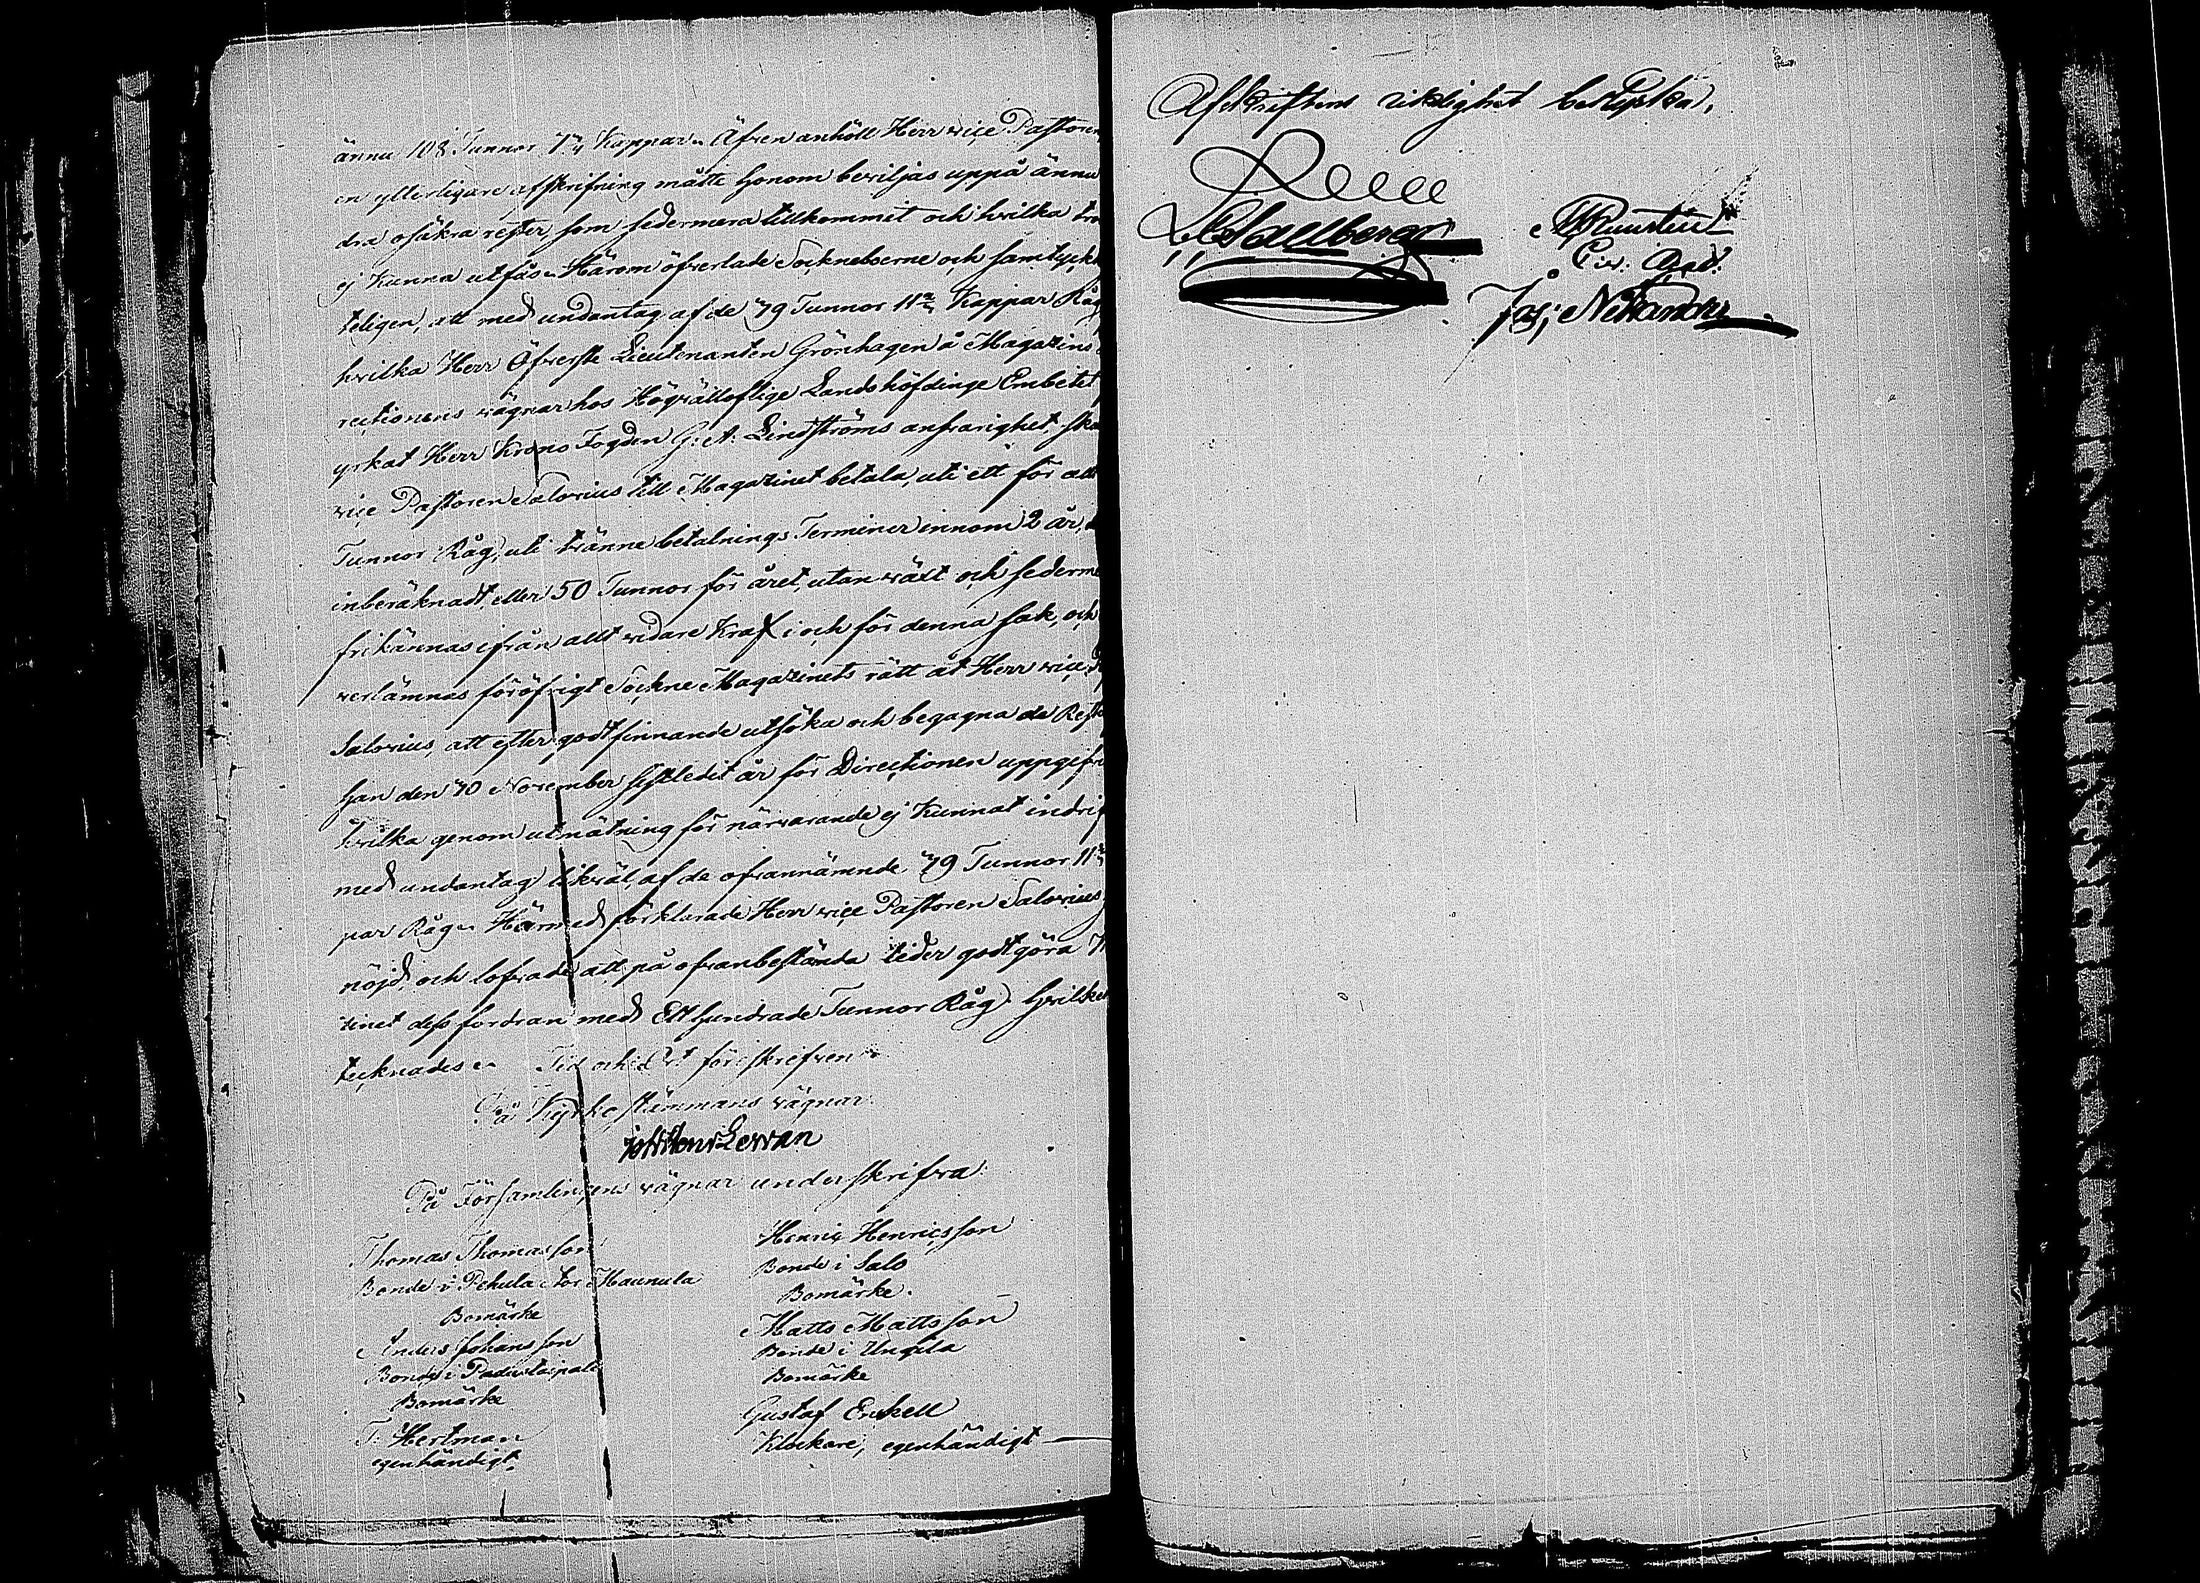 ännu 108 Tunnor 7¾ Kappar. Äfven anhöll Herr vice Pastoren
en ytterligare afskrifning måtte honom beviljas uppå ännu
dra osäkra rester, som sedermera tillkommit och hvilka
ej kunna utfås. Härom öfverlade Socknboerne och samtyckte
teligen, att med undantag af de 79 Tunnor 11 Kappar Råg
hvilka Herr Öfverste Lieutenanten Grönhagen å Magazins
rectionens vägnar hos Högvälloflige Landshöfdinge Embetet
yrkat Herr Krono Fogden G: A: Lindströms ansvarighet, ska
vice Pastoren Salovius till Magazinet betala, uti ett för allt
Tunnor Råg, uti tvänne betalnings Terminer innom 2 år,
inberäknadt, eller 50 Tunnor för året, utan växt och sederme
frikännas ifrån allt vidare Kraf i och för denna sak, och
verlämnas föröfrigt Sockne Magazinets rätt åt Herr vice P
Salovius, att efter godtfinnande utsöka och begagna de Rest
han den 10 November sistledit år för Directionen uppgifvi
hvilka genom utmätning för närvarande ej kunnat indrif
med undantag likväl, af de ofvannämnde 79 Tunnor 11
par Råg. Härmed förklarade Herr vice Pastoren Salovius
nöjd, och lofvade att på ofvanbestämda tider godtgöra M
zinet dess fordran med Ett hundrade Tunnor Råg. Hvilket
tecknades. Tid och Ort föreskrefven.
På Kyrkostämmans vägnar
Levan
På Församlingens vägnar underskrifva:
Thomas Thomasson
Bonde i Pekula Nor Maunula
Bomärke
Anders Johansson
Bonde i Padustaipale
Bomärke
T: Hertman
egenhändigt.
Henric Henricsson
Bonde i Salo
Bomärke.
Matts Mattsson
Bonde i Ungila
Bomärke
Gustaf Enkell
Klockare, egenhändigt
Afskriftens riktighet betyga,